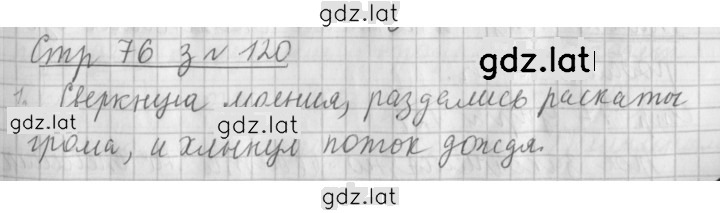 gdz.lat
Стр 76 з № 120
gdz.lat
1. Сверкнула молния, раздались раскаты
gdz.lat
gdz.lat
грома, и хлынул поток дождя.
gdz.lat